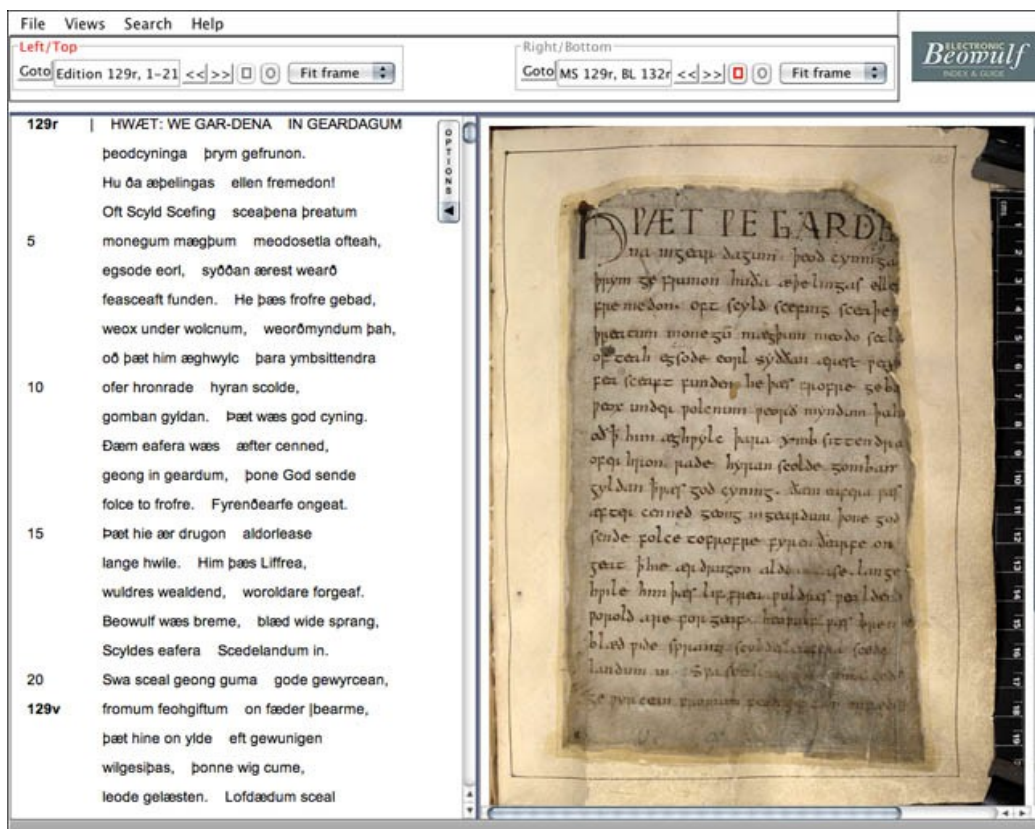 File Views Search Help
Left/Top
Goto Edition 129r, 1-21 << >> Fit frame
Right/Bottom
Goto MS 129r, BL 132r << >> Fit frame
ELECTRONIC
Beowulf
INDEX & GUIDE
OPTIONS
129r | HWÆT: WE GAR-DENA IN GEARDAGUM
þeodcyninga þrym gefrunon.
Hu ða æþelingas ellen fremedon!
Oft Scyld Scefing sceaþena þreatum
5 monegum mægþum meodosetla ofteah,
egsode eorl, syððan ærest wearð
feasceaft funden. He þæs frofre gebad,
weox under wolcnum, weorðmyndum þah,
oð þæt him æghwylc þara ymbsittendra
10 ofer hronrade hyran scolde,
gomban gyldan. Þæt wæs god cyning.
Ðæm eafera wæs æfter cenned,
geong in geardum, þone God sende
folce to frofre. Fyrenðearfe ongeat.
15 Þæt hie ær drugon aldorlease
lange hwile. Him þæs Liffrea,
wuldres wealdend, woroldare forgeaf.
Beowulf wæs breme, blæd wide sprang,
Scyldes eafera Scedelandum in.
20 Swa sceal geong guma gode gewyrcean,
129v fromum feohgiftum on fæder |bearme,
þæt hine on ylde eft gewunigen
wilgesiþas, þonne wig cume,
leode gelæsten. Lofdædum sceal
HǷÆT ǷE GARDE
na ingear dagum. þeod cyninga
þrym ge frunon huða æþelingas elle
fremedon. oft scyld scefing sceaþe
þreatum monegū mægþum meodo setla
of teah egsode eorl syððan ærest
fea sceaft funden he þæs frofre geba
ƿeox under ƿolcnum ƿeorð myndum þah
oð ꝥ him æghƿylc þara ymb sittendra
ofer hron rade hyran scolde gomban
gyldan ꝥ ƿæs god cyning. ðæm eafera ƿæs
æfter cenned geong ingeardum þone god
sende folce tofrofre fyren ðearfe on
geat ꝥ hie ær drugon lange
hƿile him þæs lif frea ƿuldres ƿealdend
ƿorold are for geaf. ƿæs
blæd ƿide sprang scede
landum in. Sƿa
ge ƿyrcean fromum